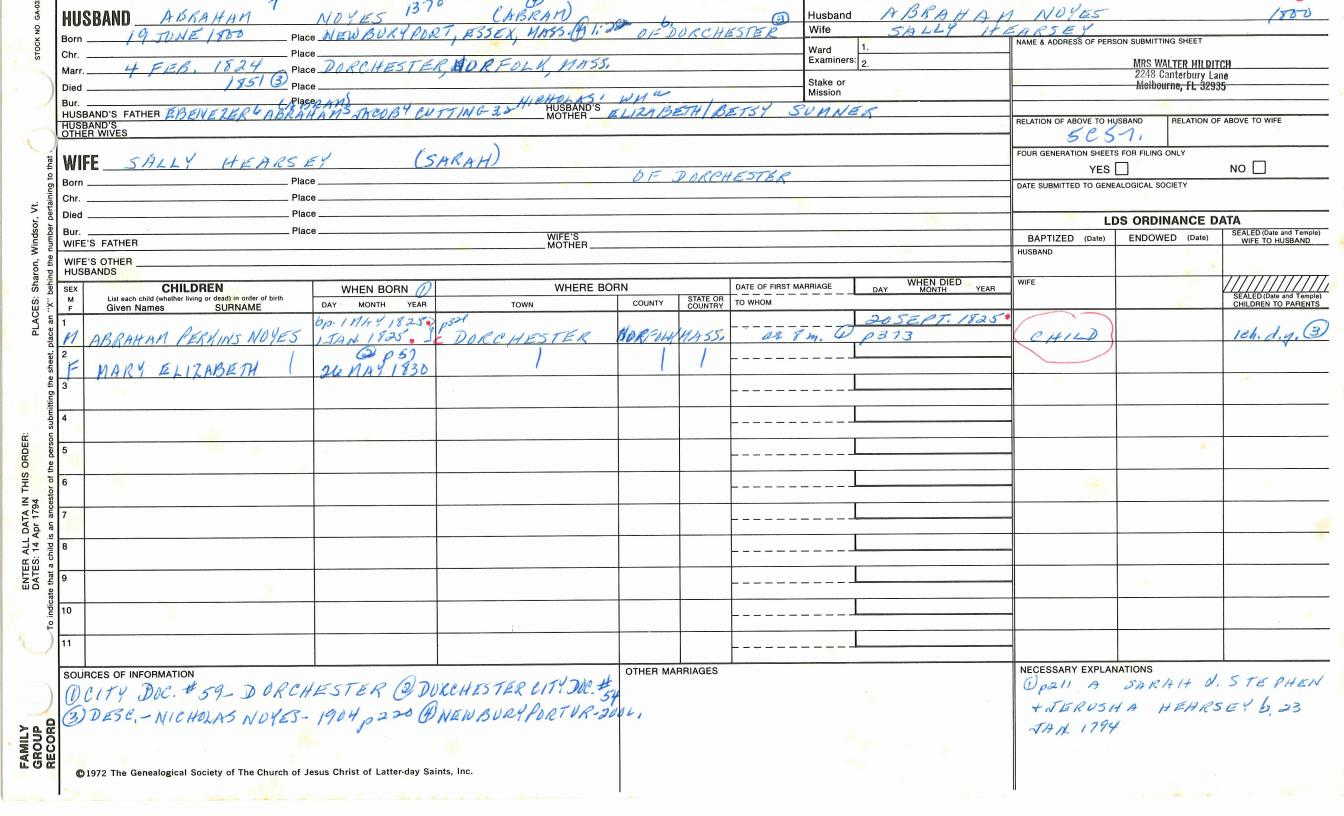 STOCK NO GA-03
HUSBAND ABRAHAM NOYES 1370 (ABRAM)
Born 19 JUNE 1800 Place NEWBURYPORT, ESSEX, MASS. b. OF DORCHESTER ②
Chr. Place
Marr. 4 FEB. 1824 Place DORCHESTER, NORFOLK, MASS.
Died 1851 ③ Place
Bur. Place
HUSBAND'S FATHER EBENEZER ABRAHAM JACOB CUTTING NICHOLAS WM HUSBAND'S MOTHER ELIZABETH/BETSY SUMNER
HUSBAND'S OTHER WIVES
WIFE SALLY HEARSEY (SARAH)
Born Place OF DORCHESTER
Chr. Place
Died Place
Bur. Place
WIFE'S FATHER WIFE'S MOTHER
WIFE'S OTHER HUSBANDS
Husband ABRAHAM NOYES 1800
Wife SALLY HEARSEY
Ward Examiners: 1.
2.
Stake or Mission
NAME & ADDRESS OF PERSON SUBMITTING SHEET
MRS WALTER HILDITCH
2248 Canterbury Lane
Melbourne, FL 32935
RELATION OF ABOVE TO HUSBAND RELATION OF ABOVE TO WIFE
FOUR GENERATION SHEETS FOR FILING ONLY
YES NO
DATE SUBMITTED TO GENEALOGICAL SOCIETY
LDS ORDINANCE DATA
BAPTIZED (Date) ENDOWED (Date) SEALED (Date and Temple) WIFE TO HUSBAND
HUSBAND
WIFE
SEALED (Date and Temple) CHILDREN TO PARENTS
SEX M F
CHILDREN
List each child (whether living or dead) in order of birth
Given Names SURNAME
WHEN BORN ①
DAY MONTH YEAR
WHERE BORN
TOWN COUNTY STATE OR COUNTRY
DATE OF FIRST MARRIAGE
TO WHOM
WHEN DIED
DAY MONTH YEAR
bp. 1 MAY 1825 p321 20 SEPT. 1825
1 M ABRAHAM PERKINS NOYES 1 JAN 1825 DORCHESTER NORFOLK MASS. ae 8 m. ② p373 CHILD 1ch. d.y. ③
② p57
2 F MARY ELIZABETH 26 MAY 1830
3
4
5
6
7
8
9
10
11
SOURCES OF INFORMATION
① CITY DOC. #59- DORCHESTER ② DORCHESTER CITY DOC. # 54
③ DESC.- NICHOLAS NOYES- 1904 p220 ④ NEWBURYPORT VR-
OTHER MARRIAGES
NECESSARY EXPLANATIONS
① p211 A SARAH d. STEPHEN
+ JERUSHA HEARSEY b. 23
JAN. 1794
©1972 The Genealogical Society of The Church of Jesus Christ of Latter-day Saints, Inc.
FAMILY GROUP RECORD
ENTER ALL DATA IN THIS ORDER:
DATES: 14 Apr 1794
PLACES: Sharon, Windsor, Vt.
To indicate that a child is an ancestor of the person submitting the sheet, place an "X" behind the number pertaining to that